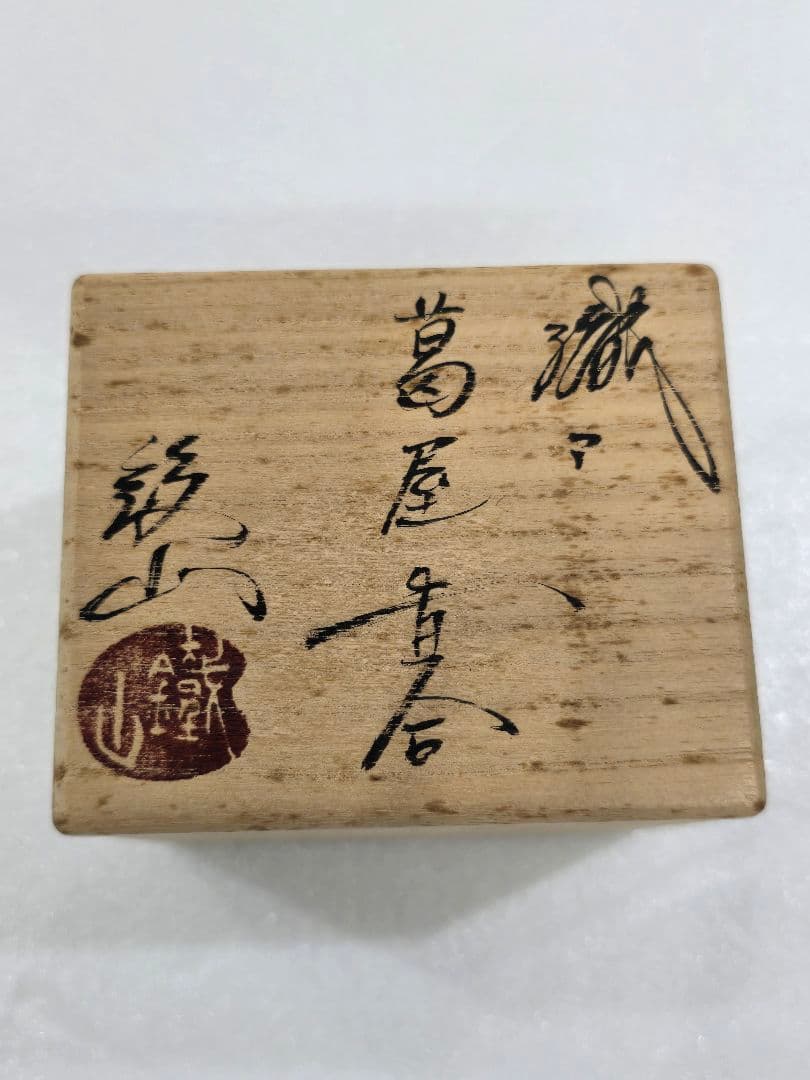 織部
葛屋香合
鐵山
鐵山